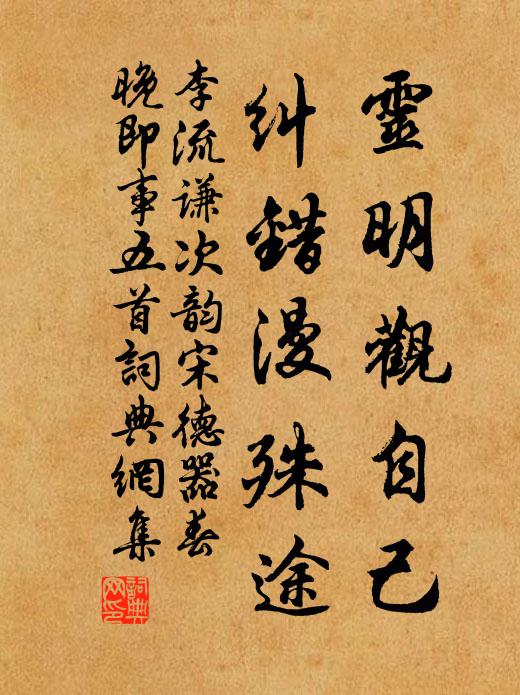 靈明觀自己
糾錯漫殊途
李流謙次韵宋德器春
晚即事五首詞典網集
詞典網印